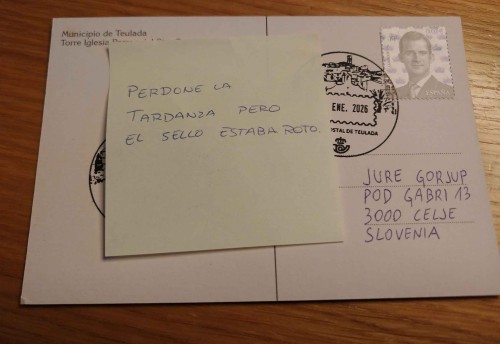 Municipio de Teulada
Torre Iglesie
PERDONE LA
TARDANZA PERO
EL SELLO ESTABA ROTO.
ENE. 2026
POSTAL DE TEULADA
ESPAÑA
JURE GORJUP
POD GABRI 13
3000 CELJE
SLOVENIA